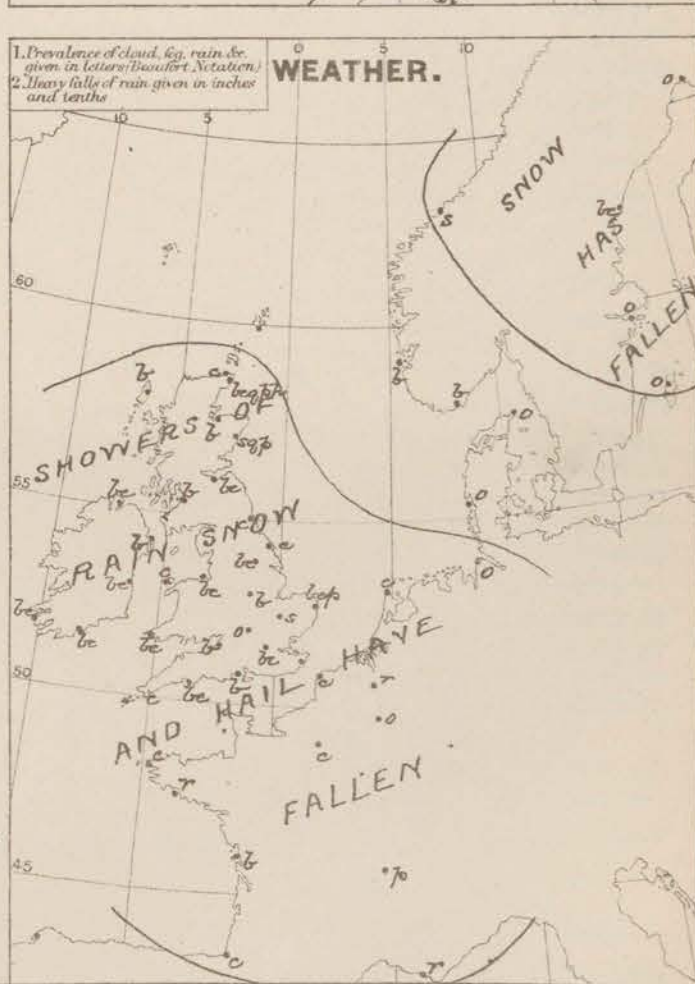 1. Prevalence of cloud, fog, rain &c.
given in letters (Beaufort Notation)
2. Heavy falls of rain given in inches
and tenths
WEATHER.
0 5 10
10 5
60
55
50
45
SNOW
HAS
FALLEN
SHOWERS OF
RAIN SNOW
AND HAIL HAVE
FALLEN
o
s
bc
o
o
b
b
o
b
c
bcqph
b
sqp
bc
b
bc
o
b
c
bc
c
o
bc
c
bc
b
bcp
s
bc
bc
bc
o
bc
c
bc
b
c
r
o
c
c
r
b
p
c
r